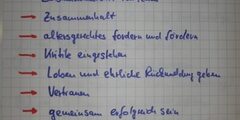 Zusammenhalt
altersgerechtes fordern und fördern
Kritik eingestehen
Loben und ehrliche Rückmeldung geben
Vertrauen
gemeinsam erfolgreich sein